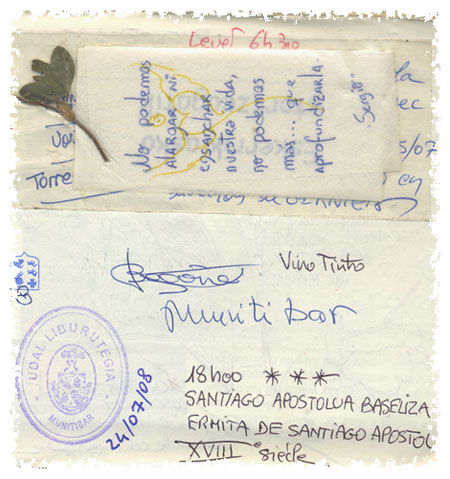 Level 6h30
No podemos
alargar, ni
ensanchar
nuestra vida,
no podemos
mas... que
aprofundizarla.
Sergio
la
ec
5/07
Torre
en
Begoña
Vino Tinto
Munitibar
UDAL LIBURUTEGIA
MUNITIBAR
24/07/08
18h00 ***
SANTIAGO APOSTOLUA BASELIZA
ERMITA DE SANTIAGO APOSTOL
XVIII° siécle